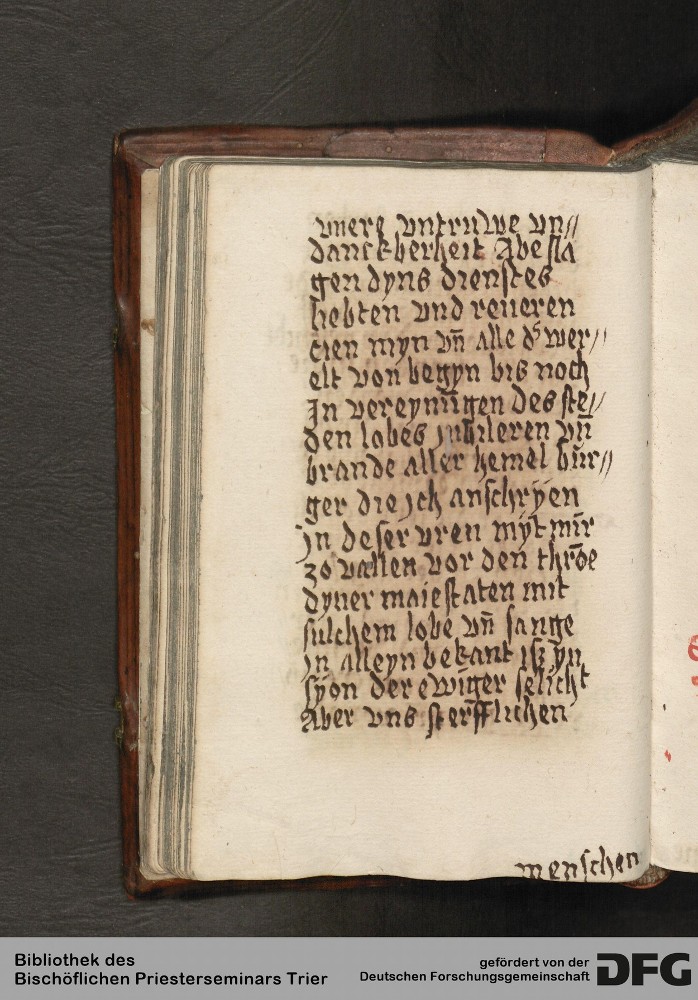 vnere vntruwe vn//
danckberheit Abesla
gen dyns dienstes
hebten vnd reueren
cien myn vn̄ alle d' wer//
elt von begyn bis noch
In vereynūgen des ste//
den lobes jubileren vn̄
brande aller hemel būr//
ger die jch anschryen
jn deser vren myt mir
zo vallen vor den thrōe
dyner maiestaten mit
sulchem lobe vn̄ sange
jn alleyn bekant isz yn
syon der ewiger selicht
Aber vns sterfflichen
menschen
Bibliothek des
Bischöflichen Priesterseminars Trier
gefördert von der
Deutschen Forschungsgemeinschaft
DFG